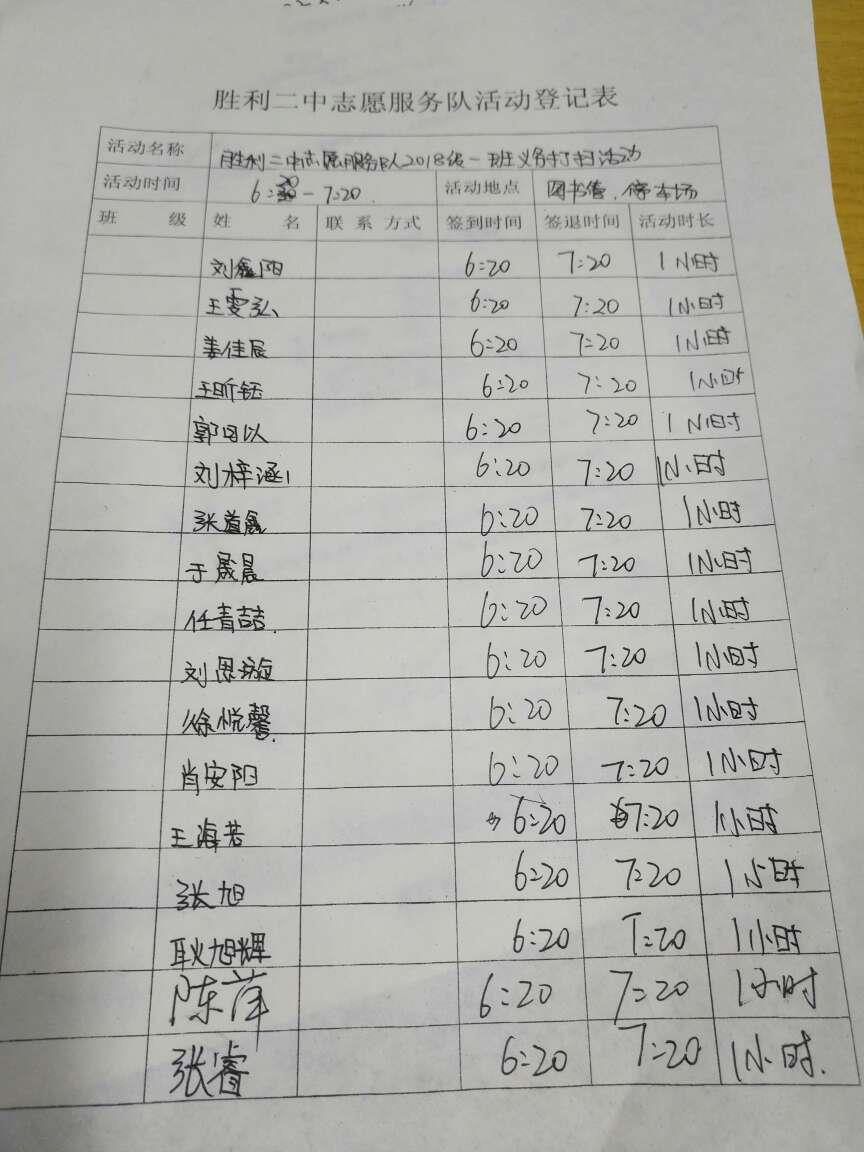 胜利二中志愿服务队活动登记表
活动名称 胜利二中志愿服务队2018级一班义务打扫活动
活动时间 6:20-7:20 活动地点 图书馆、停车场
班 级 姓 名 联系方式 签到时间 签退时间 活动时长
刘鑫阳 6:20 7:20 1小时
王雯弘 6:20 7:20 1小时
姜佳辰 6:20 7:20 1小时
王昕钰 6:20 7:20 1小时
郭因以 6:20 7:20 1小时
刘梓涵 6:20 7:20 1小时
张道鑫 6:20 7:20 1小时
于晟晨 6:20 7:20 1小时
任青喆 6:20 7:20 1小时
刘思璇 6:20 7:20 1小时
徐悦馨 6:20 7:20 1小时
肖安阳 6:20 7:20 1小时
王海若 6:20 7:20 1小时
张旭 6:20 7:20 1小时
耿旭辉 6:20 7:20 1小时
陈萍 6:20 7:20 1小时
张睿 6:20 7:20 1小时